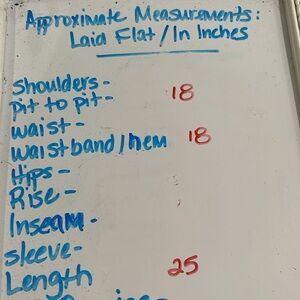 Approximate Measurements:
Laid Flat/In Inches
Shoulders-
Pit to pit- 18
Waist-
Waistband/hem 18
Hips-
Rise-
Inseam-
Sleeve-
Length 25